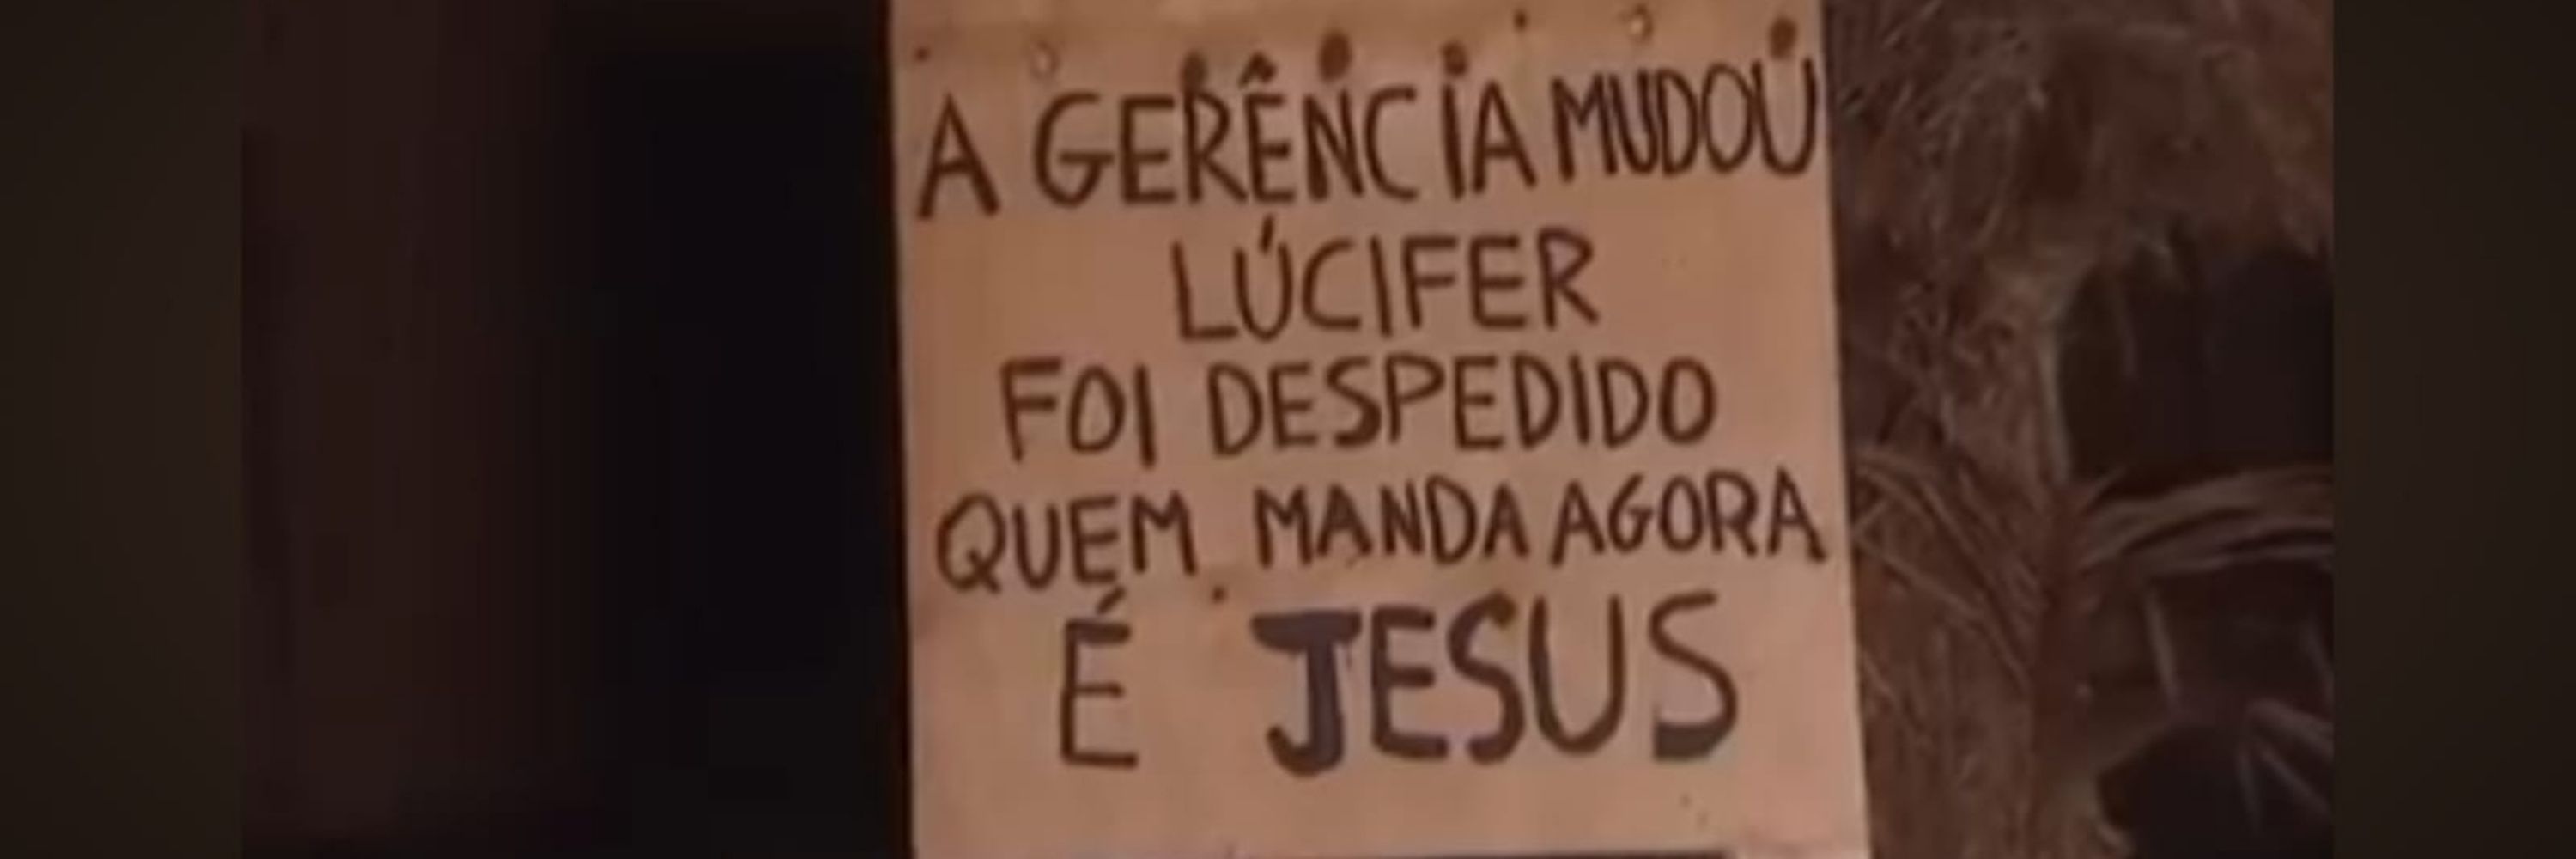 A GERÊNCIA MUDOU
LÚCIFER
FOI DESPEDIDO
QUEM MANDA AGORA
É JESUS